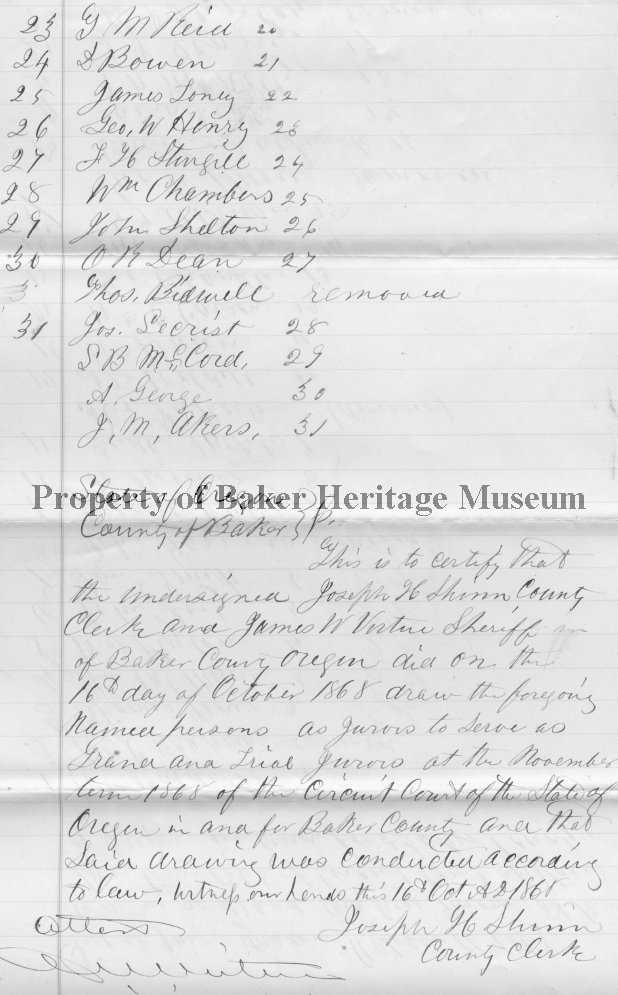 23 G M Reid 20
24 D Bowen 21
25 James Loney 22
26 Geo, W Henry 23
27 F H Sturgill 24
28 Wm Chambers 25
29 John Shelton 26
30 O R Dean 27
3 Thos. Bidwell removed
31 Jos. Secrist 28
S B McCord, 29
A, George 30
J, M, Akers, 31
State of Oregon
Property of Baker Heritage Museum
County of Baker
This is to certify that
the undersigned Joseph H Shinn County
Clerk and James W Virtue Sheriff
of Baker County Oregon did on the
16th day of October 1868 draw the foregoing
Named persons as Jurors to serve as
Grand and Trial Jurors at the November
term 1868 of the Circuit Court of the State of
Oregon in and for Baker County and that
Said drawing was conducted according
to law, Witness our hands this 16th Oct AD 1868
Attest Joseph H Shinn
County Clerk
Virtue